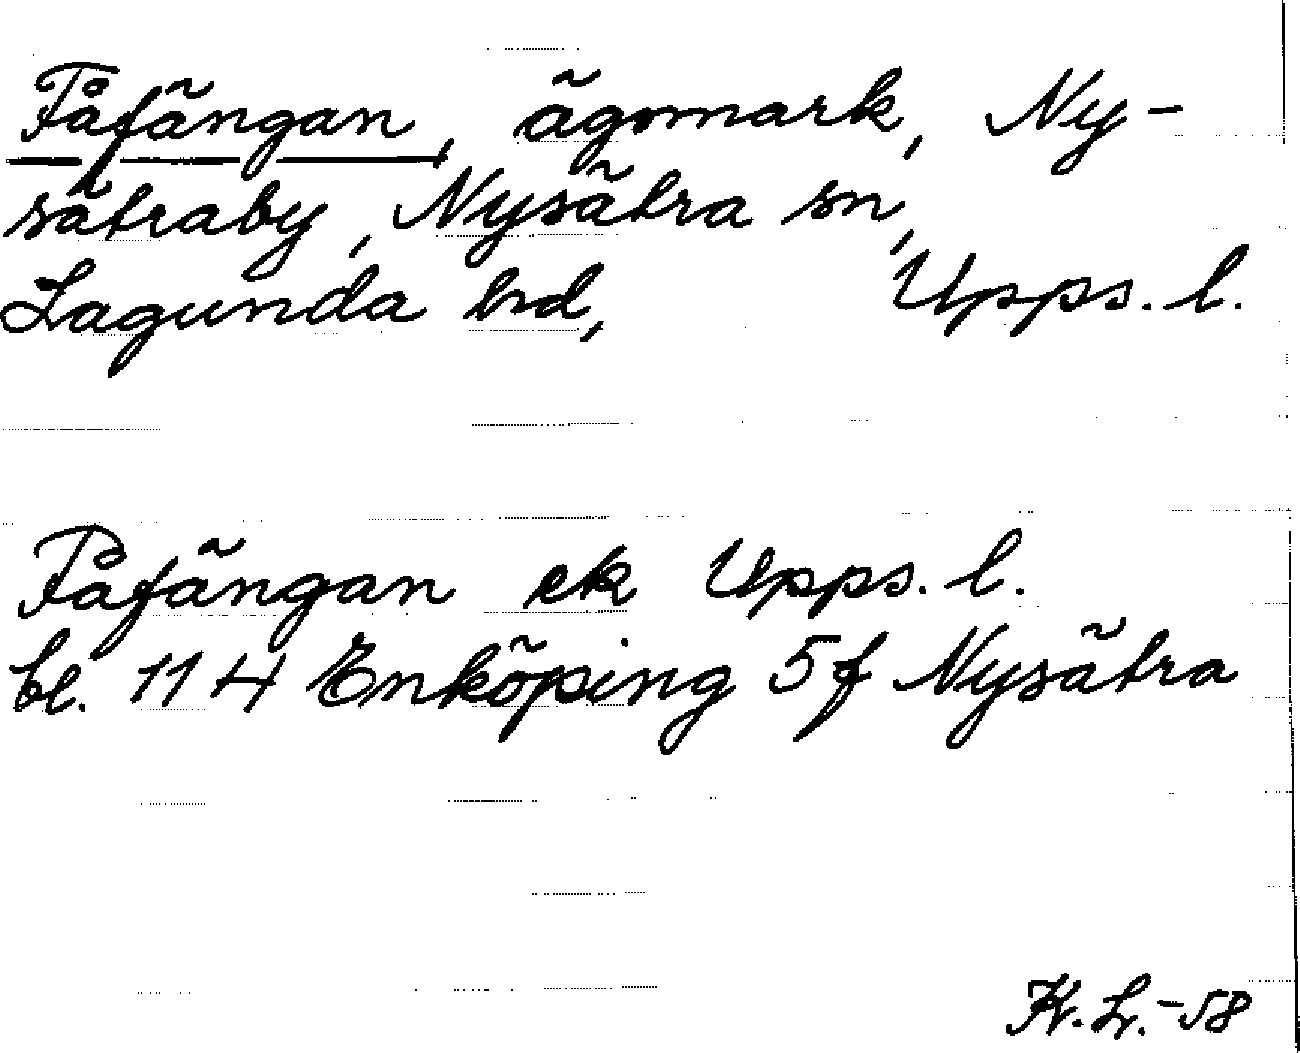 Fåfängan, ägomark, Ny-
sätraby, Nysätra sn,
Lagunda hd, Upps. l.
Fåfängan ek Upps. l.
bl. 11 H Enköping 5f Nysätra
K. L. -58